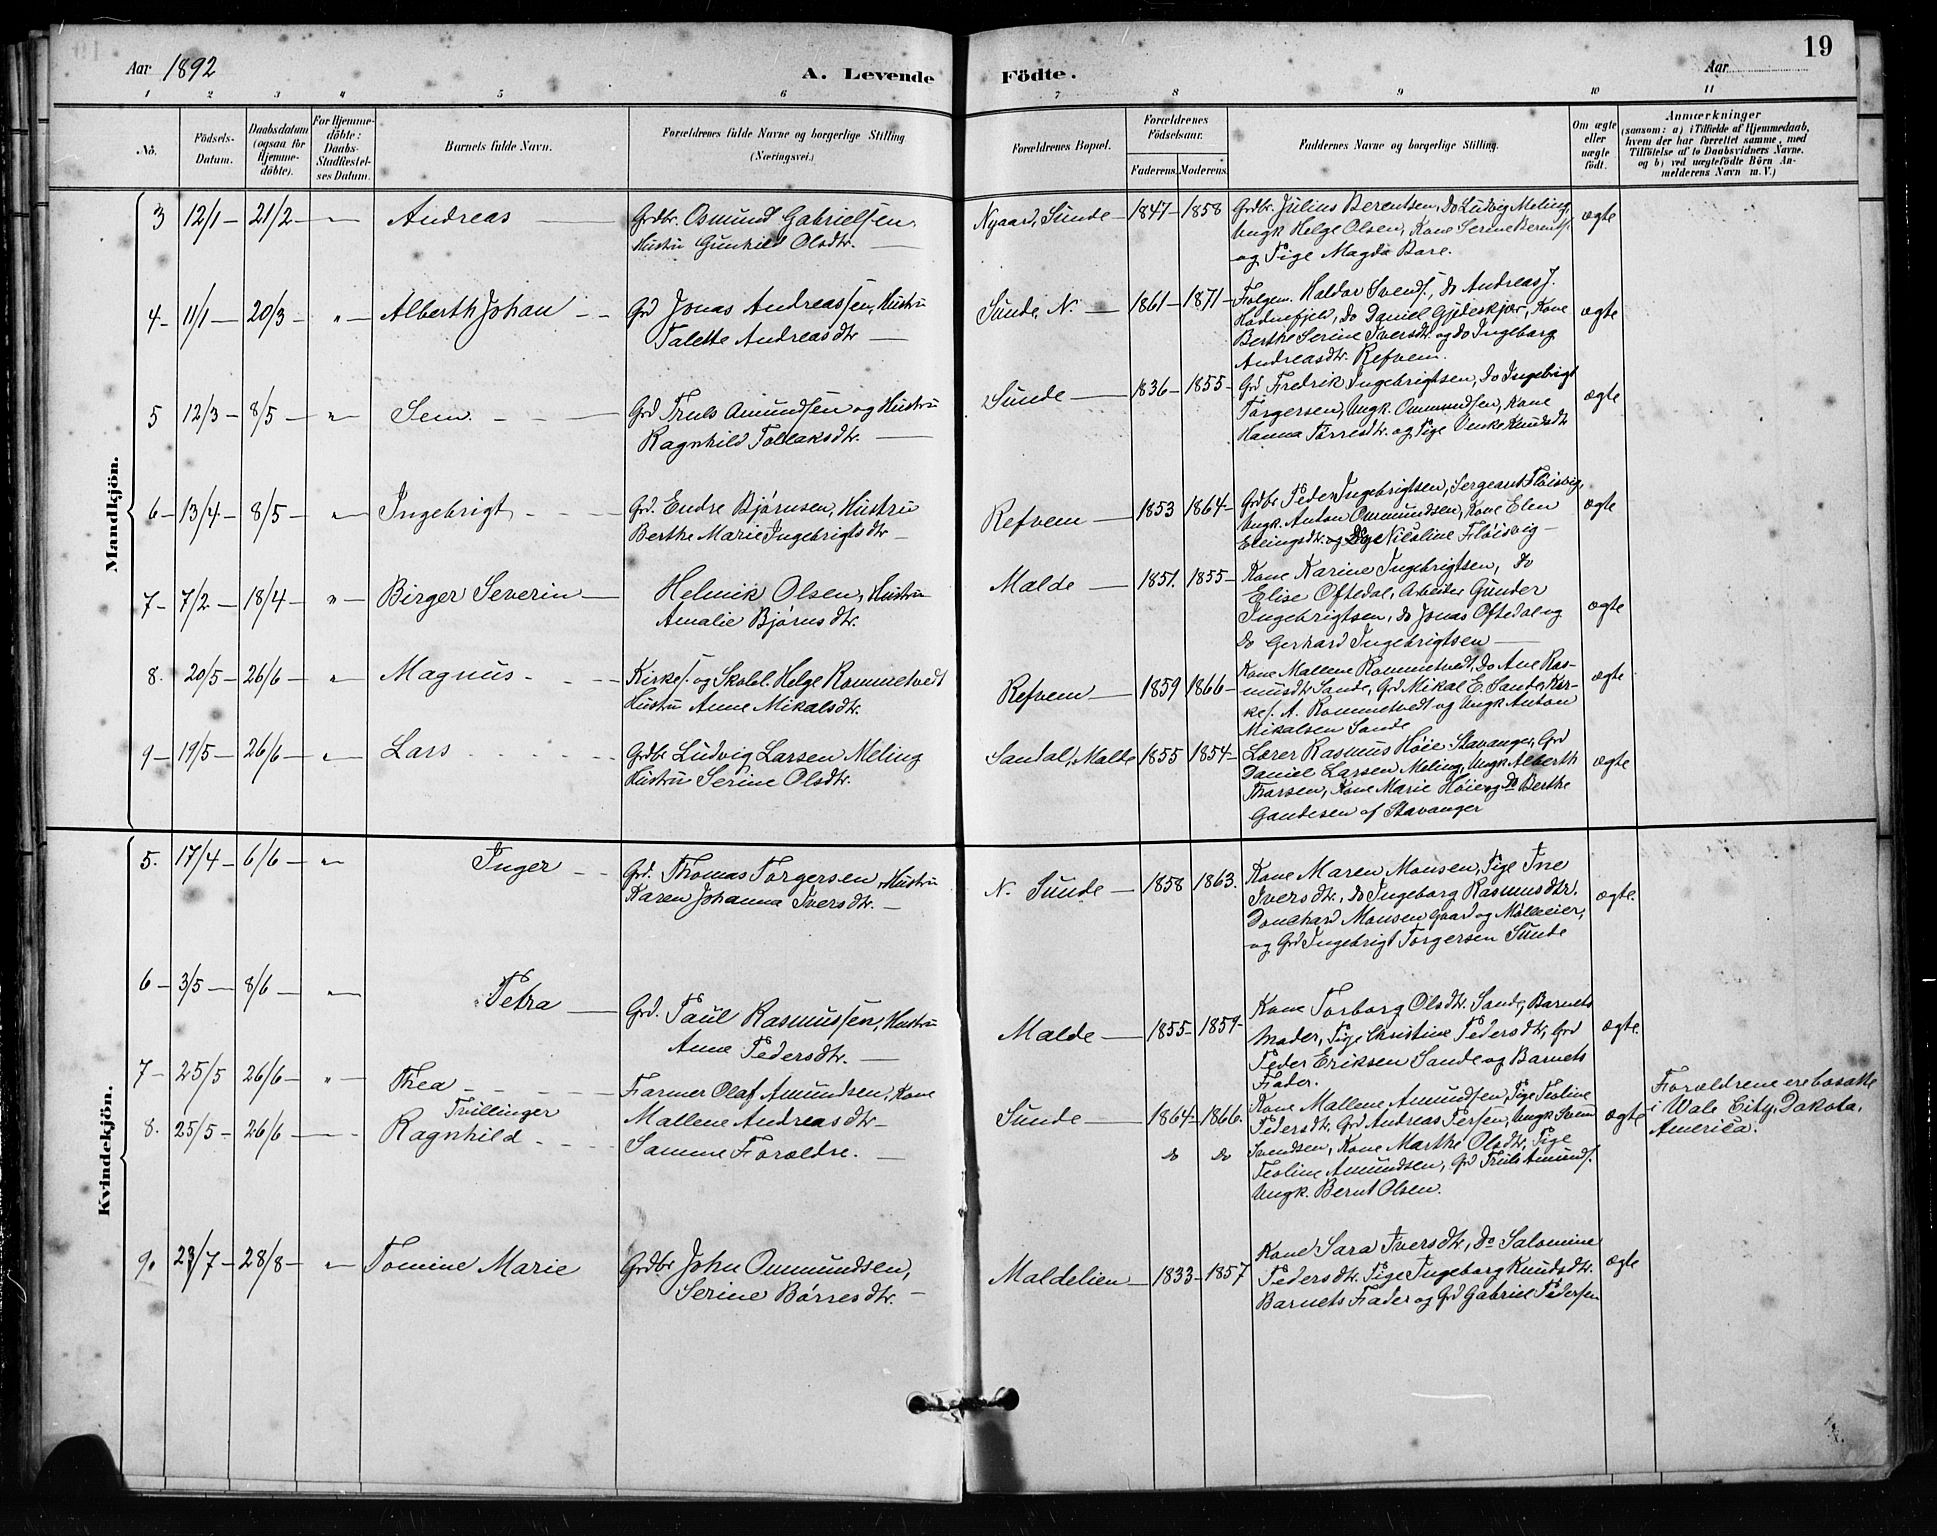 19
Aar 1892
A. Levende
Födte.
Aar
1 2 3 4 5 6 7 8 9 10 11
No.
Födsels-
Datum.
Daabsdatum
(ogsaa for
Hjemme-
döbte).
For Hjemme-
döbte:
Daabs-
Stadfæstel-
ses Datum.
Barnets fulde Navn.
Forældrenes fulde Navne og borgerlige Stilling
(Næringsvei.)
Forældrenes Bopæl.
Forældrenes
Födselsaar.
Faderens. Moderens.
Faddernes Navne og borgerlige Stilling.
Om ægte
eller
uægte
födt.
Anmærkninger
(saasom: a) i Tilfælde af Hjemmedaab,
hvem der har forrettet samme, med
Tilföielse af to Daabsvidners Navne.
og b) ved uægtefödte Börn An-
melderens Navn m. V.)
Mandkjön.
3 12/1 - 21/2 - " Andreas
Grdbr. Osmund Gabrielsen
Hustru Gunhild Olsdtr.
Nygaard, Sunde - 1847 - 1858
Grdbr. Julius Berentsen, Do Ludvig Meling
Ungk Helge Olsen, Kone Serine Berents.
og Pige Magda Bare.
ægte
4 - 11/1 - 20/3 - " Alberth Johan
Grd Jonas Andreassen, Hustru
Talette Andreasdtr
Sunde N. - 1861 - 1871
Folgem. Haldor Svends., do Andreas J.
Hodnefjeld, Do Daniel Gjileskjær, Kone
Berthe Serine Iversdtr og do Ingeborg
Andreasdtr. Refvem.
ægte
5 12/3 - 8/5 - " Sem
Grd Truls Amundsen og Hustru
Ragnhild Tollaksdtr.
Sunde - 1836 - 1855
Grd Fredrik Ingebrigtsen, Do Ingebrigt
Torgersen, Ungk. Ommundsen, Kone
Hanna Torresdtr. og Pige Venke Knudsdtr
ægte
6 - 13/4 - 8/5 - " Ingebrigt
Grd. Endre Bjørnsen, Hustru
Berthe Marie Ingebrigtsdtr
Refvem - 1853 1864
Grdbr Peder Ingebrigtsen, Sergeant Fløisvig,
Ungk. Anton Ommundsen, Kone Elen
Ellingsdtr. og Pige Nicoline Fløisvig
ægte
7 - 7/2 - 18/4 - " Birger Severin
Helmik Olsen, Hustru
Amalie Bjørnsdtr.
Malde - 1851. 1855
Kone Karine Ingebrigtsen, do
Elise Oftedal, Arbeider Gunder
Ingebrigtsen, do Jonas Oftedal og
do Gerhard Ingebrigtsen
ægte
8. 20/5 - 26/6 - " Magnus
Kirkes. og Skolel. Helge Rommetvedt
Hustru Anne Mikalsdtr.
Refvem - 1859 1866
Kone Mallene Rommetvedt, Do Ane Ras-
musdtr Sande, Grd Mikal E. Sande, Kir-
kes. A. Rommetvedt og Ungk Anton
Mikalsen Sande
ægte
9 - 19/5 - 26/6 - " Lars
Grdbr Ludvig Larsen Meling
Hustru Serine Olsdtr.
Sandal, Malde 1855 1854
Lærer Rasmus Høie Stavanger, Grd
Daniel Larsen Meling, Ungk Alberth
Thorsen, Kone Marie Høie og Do Berthe
Gaudesen af Stavanger
ægte
Kvindekjön.
5. 17/4 - 6/6 - " Inger
Grd. Thomas Torgersen, Hustru
Karen Johanna Iversdtr.
N. Sunde - 1858 1863.
Kone Maren Monsen, Pige Ine
Iversdtr, Do Ingeborg Rasmusdtr.
Monsen Gaard og Mølleeier,
og Grd Ingebrigt Torgersen Sunde
ægte.
6 - 3/5 - 8/6 - " Petra
Grd. Paul Rasmussen, Hustru
Anne Pedersdtr.
Malde - 1855 - 1859
Kone Torborg Olsdtr. Sande, Barnets
Moder, Pige Christine Pedersdtr, Grd
Peder Eriksen Sande og Barnets
Fader.
ægte.
7 - 25/5 26/6 - " Thea
Tvillinger
Farmer Olaf Amundsen, Kone
Mallene Andreasdtr
Sunde - 1864 - 1866.
Kone Mallene Amundsen, Pige Teoline
Pedersdtr. Grd Andreas Persen, Ungk Sven
Svendsen, Kone Marthe Olsdtr, Pige
Teoline Amundsen, Grd Truls Amunds.
Ungk. Bernt Olsen.
ægte
Forældrene ere bosatte
i Wale City, Dakota,
America.
8. 25/5 - 26/6 - Ragnhild
Samme Forældre.
do do
9. 23/7 - 28/8 - " Tomine Marie
Grdbr John Ommundsen,
Serine Børresdtr.
Maldelien - 1833 - 1857
Kone Sara Iversdtr, Do Salomine
Pedersdtr. Pige Ingeborg Knudsdtr.
Barnets Fader og Grd Gabriel Pedersen
ægte